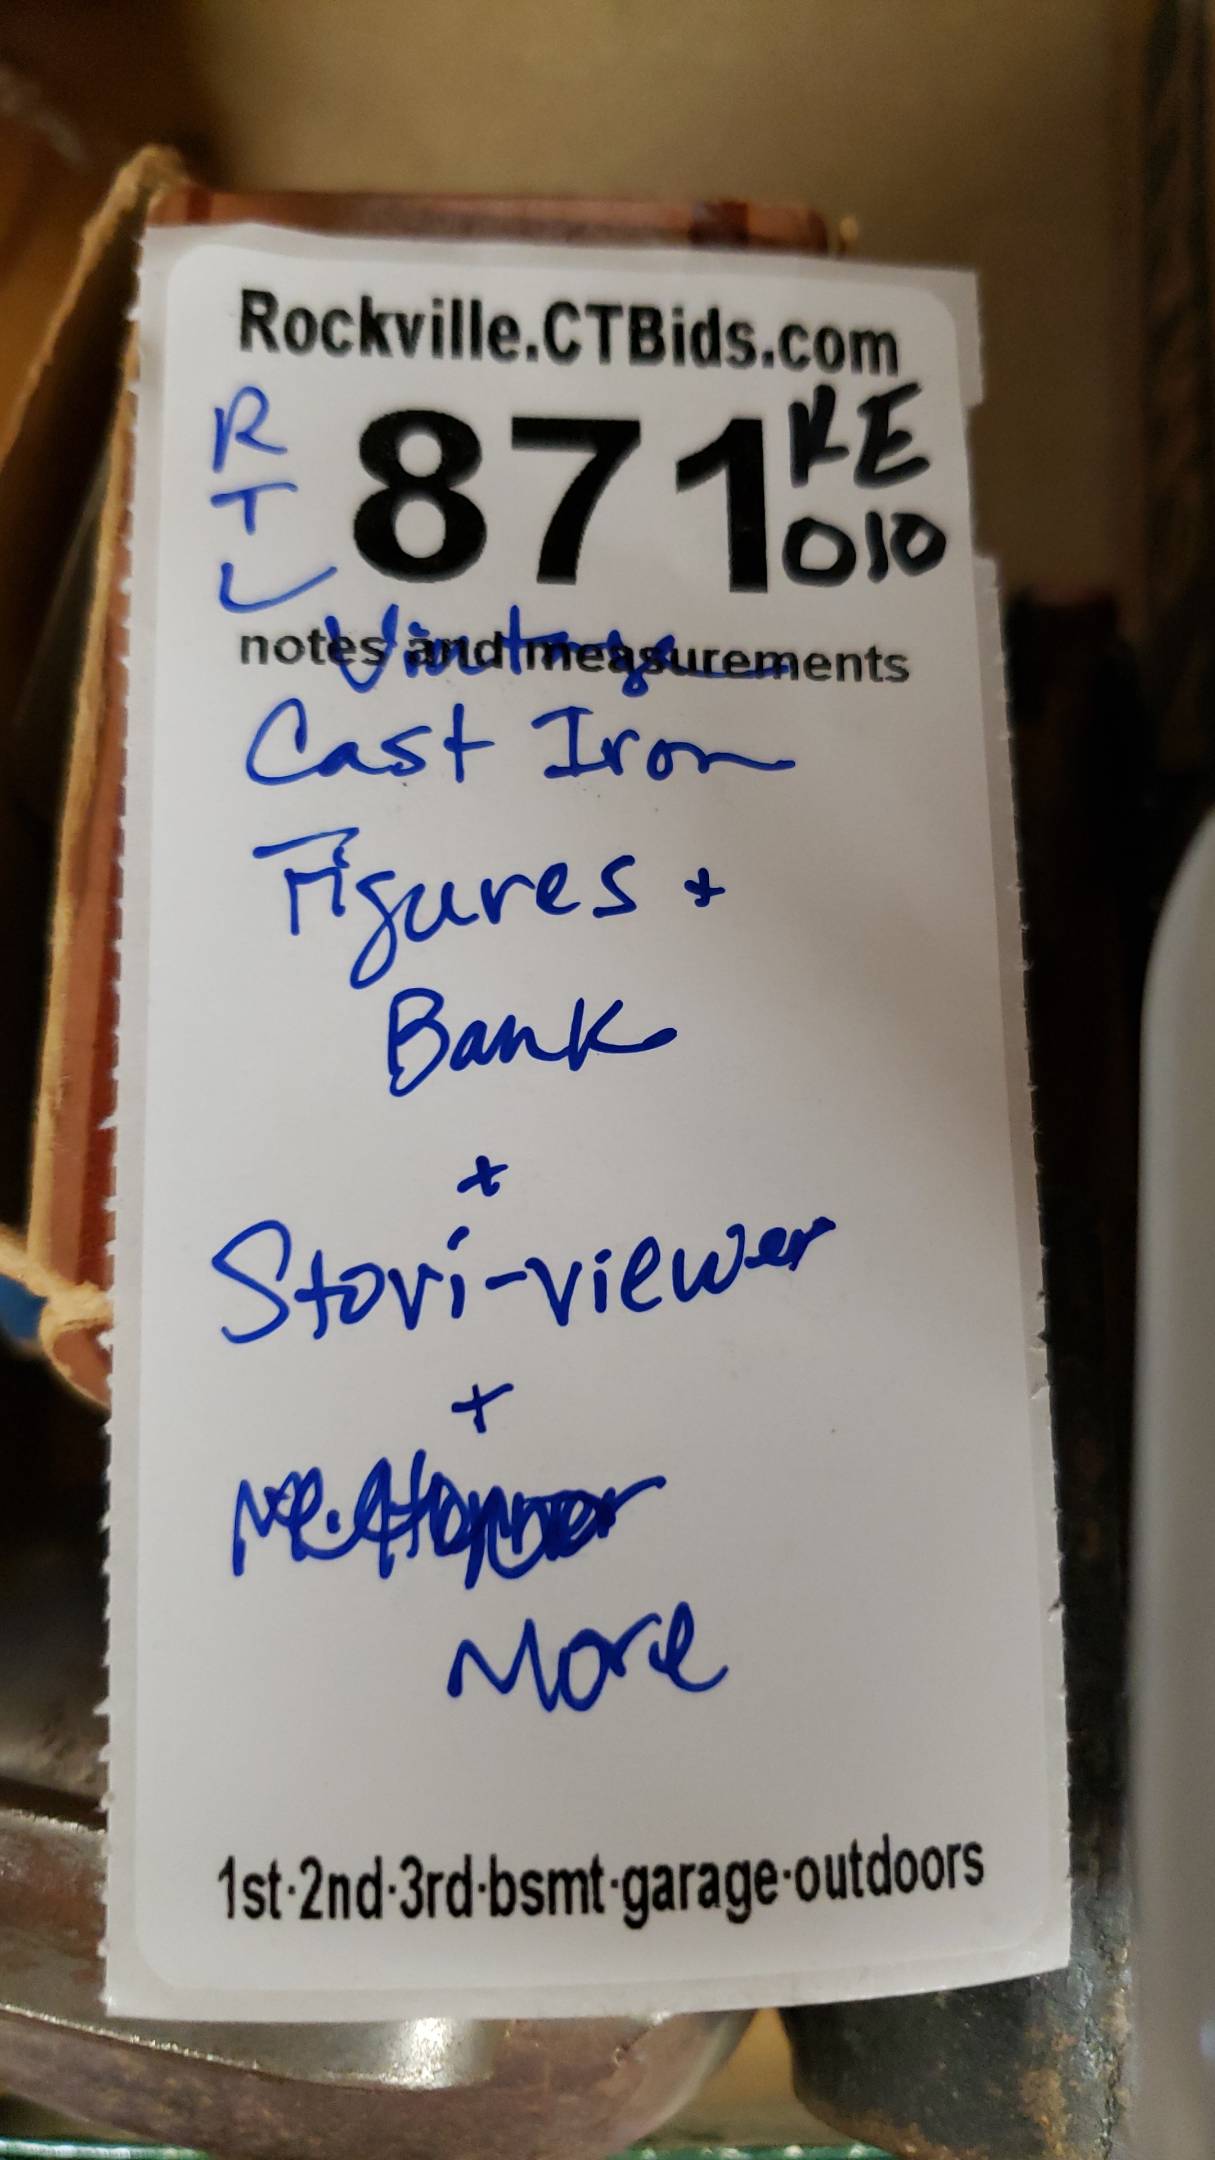 Rockville.CTBids.com
R
T
L
871
KE
010
notes and measurements
Vintage
Cast Iron
Figures +
Bank
+
Stori-viewer
+
More
1st·2nd·3rd·bsmt·garage·outdoors